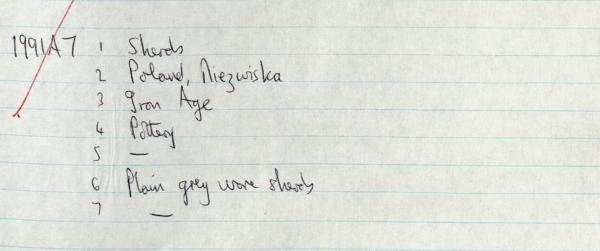 1991A7 1 Sherds
2 Poland, Niezwiska
3 Iron Age
4 Pottery
5 —
6 Plain grey ware sherds
7 —